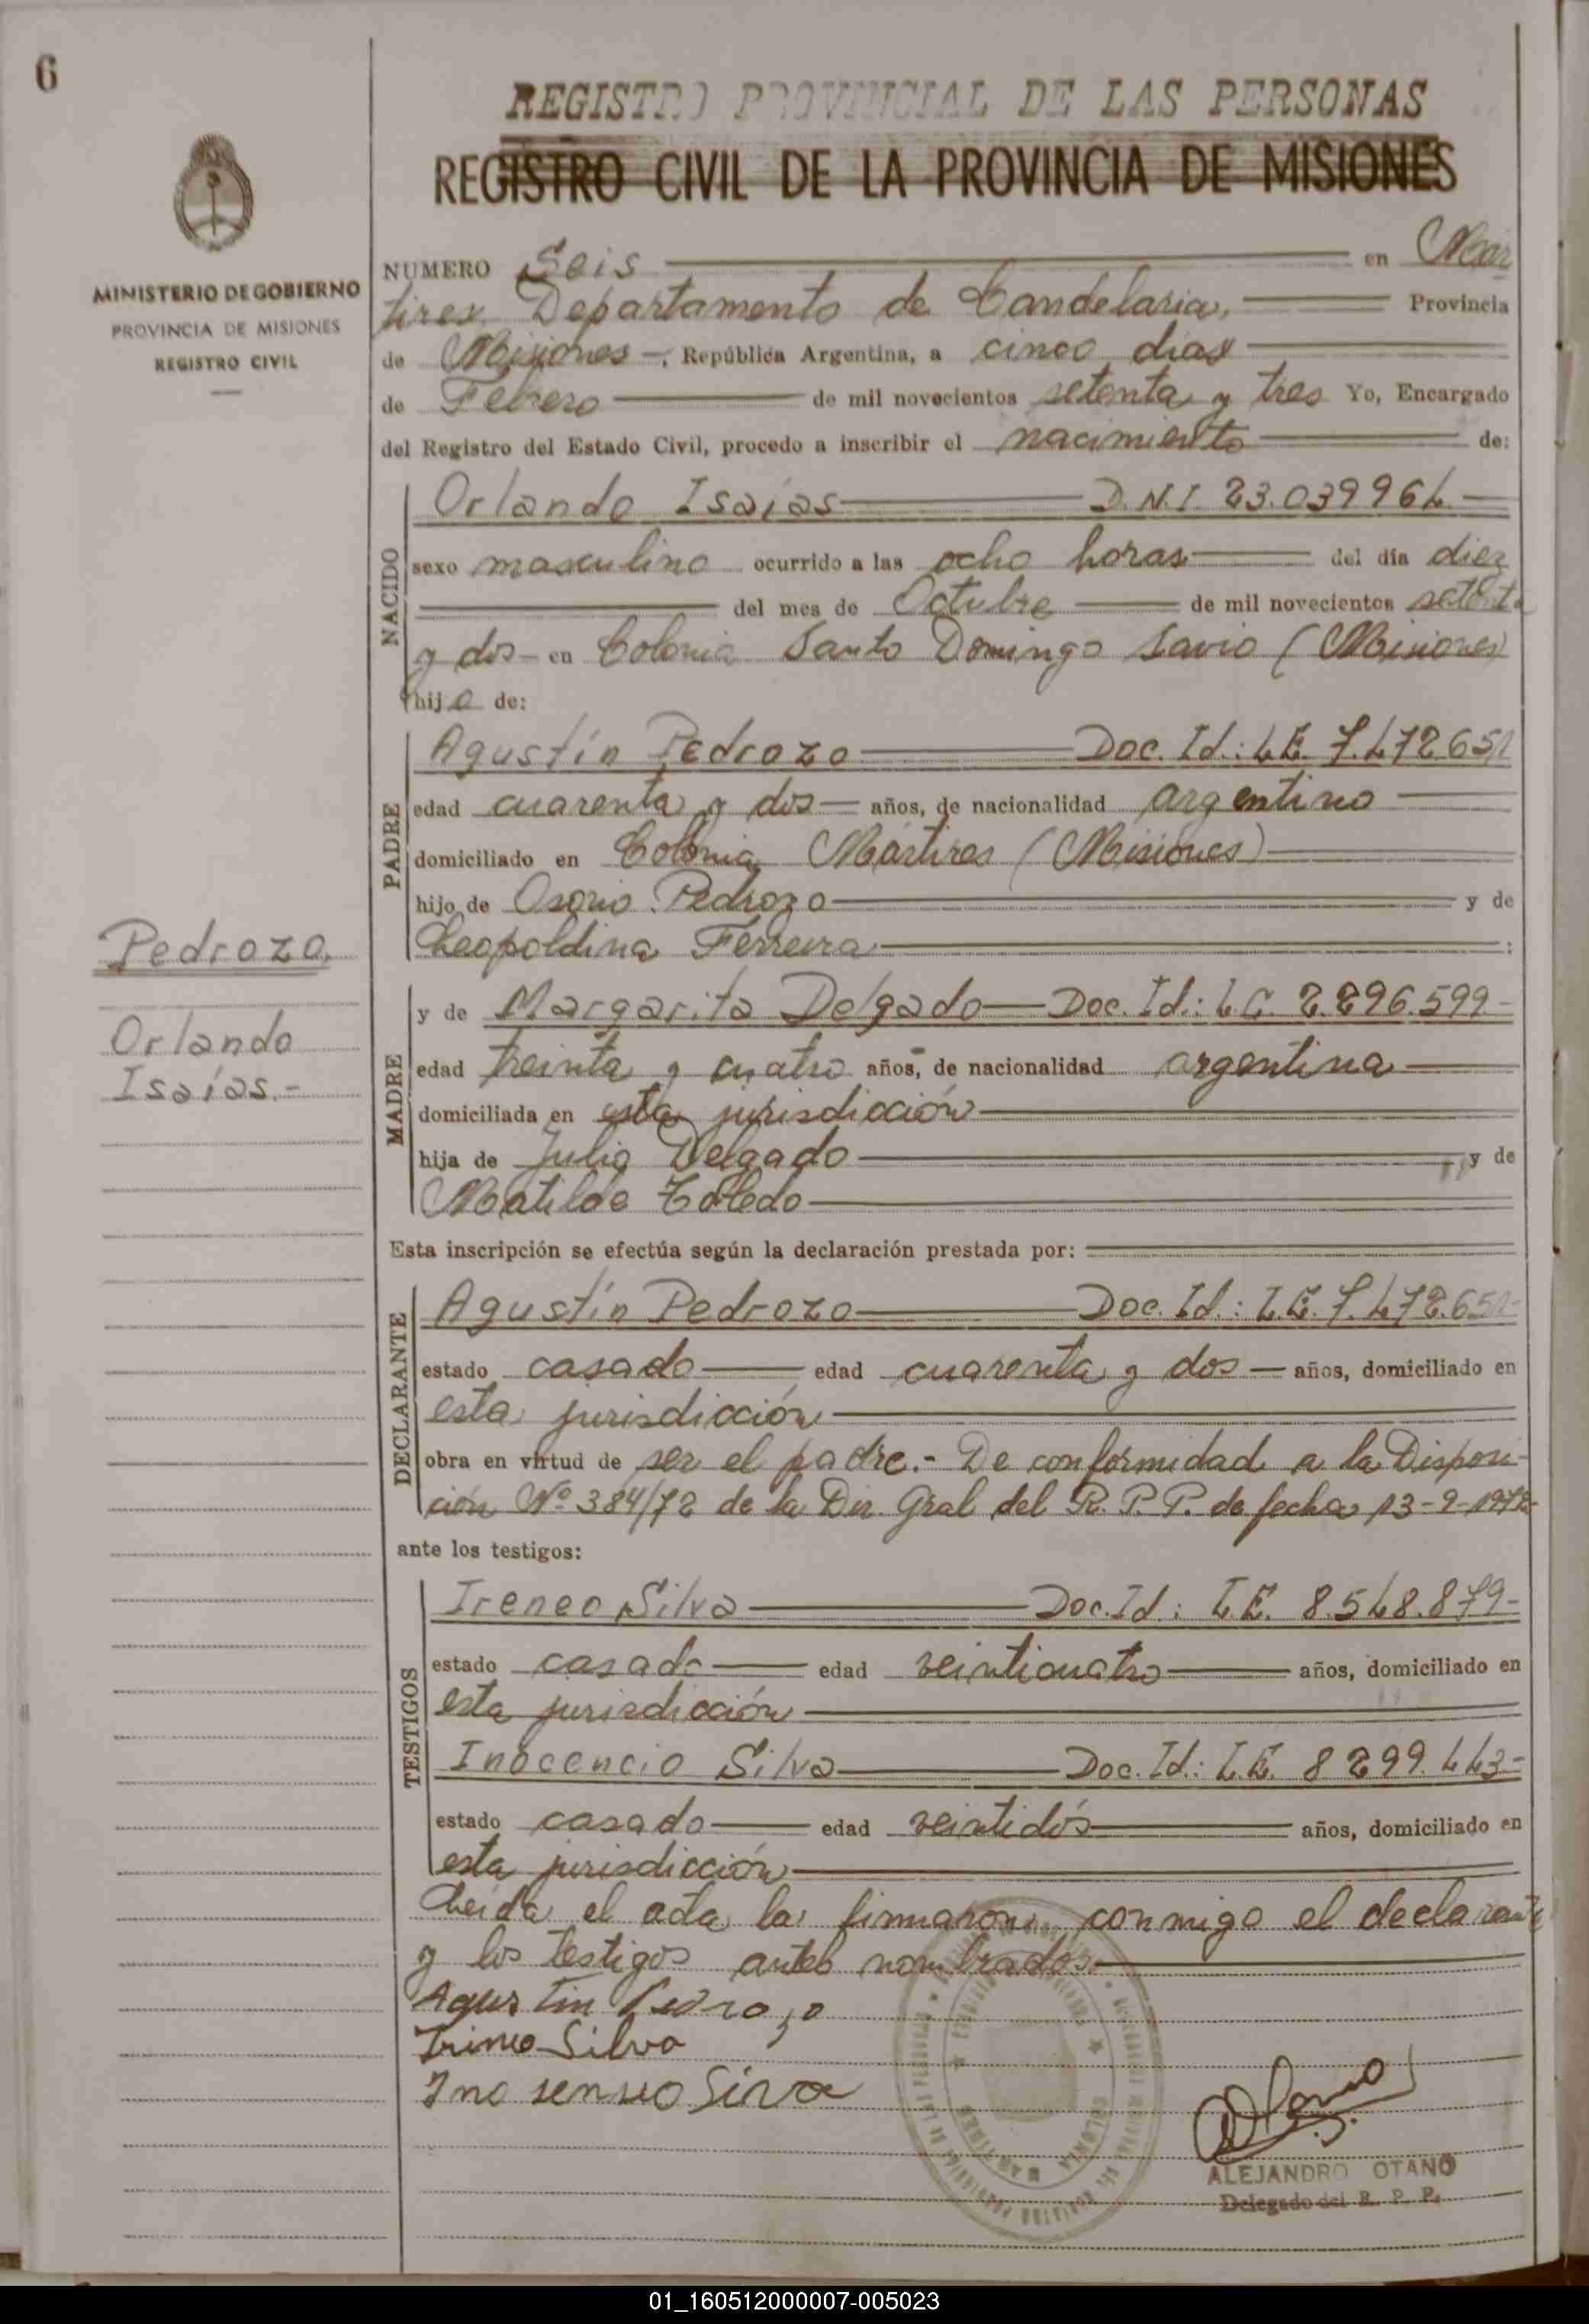 6
REGISTRO PROVINCIAL DE LAS PERSONAS
REGISTRO CIVIL DE LA PROVINCIA DE MISIONES
MINISTERIO DE GOBIERNO
PROVINCIA DE MISIONES
REGISTRO CIVIL
NUMERO Seis en Már
tires, Departamento de Candelaria, Provincia
de Misiones, República Argentina, a cinco días
de Febrero de mil novecientos setenta y tres Yo, Encargado
del Registro del Estado Civil, procedo a inscribir el nacimiento de:
NACIDO
Orlando Isaías D.N.I. 23.039964
sexo masculino ocurrido a las ocho horas del día diez
del mes de Octubre de mil novecientos setenta
y dos en Colonia Santo Domingo Savio (Misiones)
hijo de:
PADRE
Agustín Pedrozo Doc. Id.: L.E. 7.472.651
edad cuarenta y dos años, de nacionalidad argentino
domiciliado en Colonia Mártires (Misiones)
hijo de Osorio Pedrozo y de
Leopoldina Ferreira
Pedrozo.
Orlando
Isaías.-
MADRE
y de Margarita Delgado Doc. Id.: L.C. 2.296.599
edad treinta y cuatro años, de nacionalidad argentina
domiciliada en esta jurisdicción
hija de Julio Delgado y de
Matilde Toledo
Esta inscripción se efectúa según la declaración prestada por:
DECLARANTE
Agustín Pedrozo Doc. Id.: L.E. 7.472.651-
estado casado edad cuarenta y dos años, domiciliado en
esta jurisdicción
obra en virtud de ser el padre.- De conformidad a la Disposi-
ción Nº 384/72 de la Dir. Gral del R.P.P. de fecha 13-9-1972-
ante los testigos:
TESTIGOS
Ireneo Silva Doc. Id: L.E. 8.548.879-
estado casado edad veinticuatro años, domiciliado en
esta jurisdicción
Inocencio Silva Doc. Id.: L.E. 8299.443-
estado casado edad veintidós años, domiciliado en
esta jurisdicción
Leída el acta la firmaron conmigo el declarante
y los testigos antes nombrados.
Agustin Pedrozo
Irineo Silva
Ino senseo Silva
COLONIA MARTIRES
ALEJANDRO OTANO
Delegado del R. P. P.
01_160512000007-005023